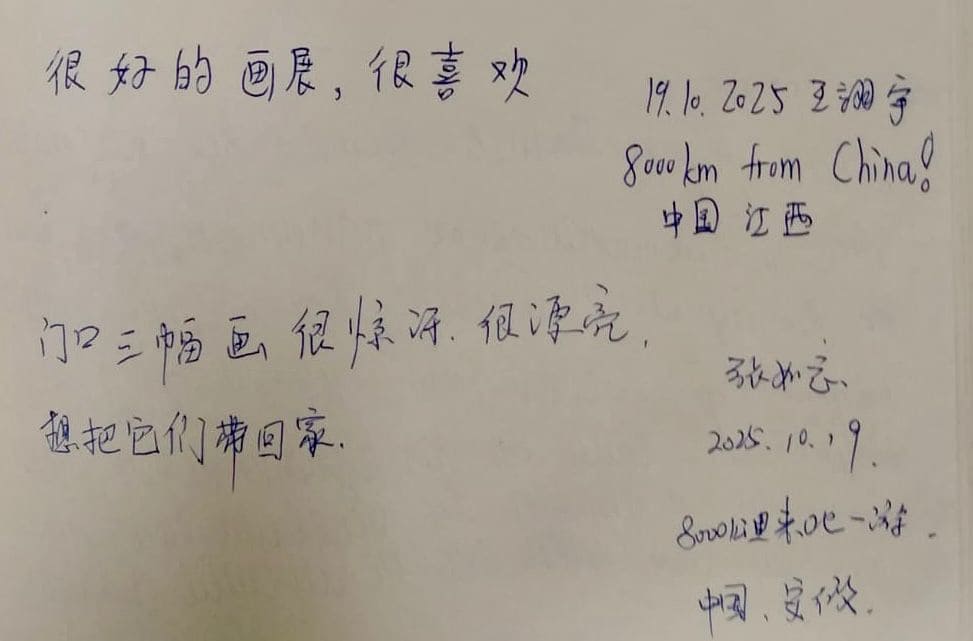 很好的画展，很喜欢
19.10.2025 王 宇
8000km from China!
中国 江西
门口三幅画 很惊讶.很漂亮.
想把它们带回家.
张如意.
2025.10.19.
8000公里来 一游.
中国、安徽.